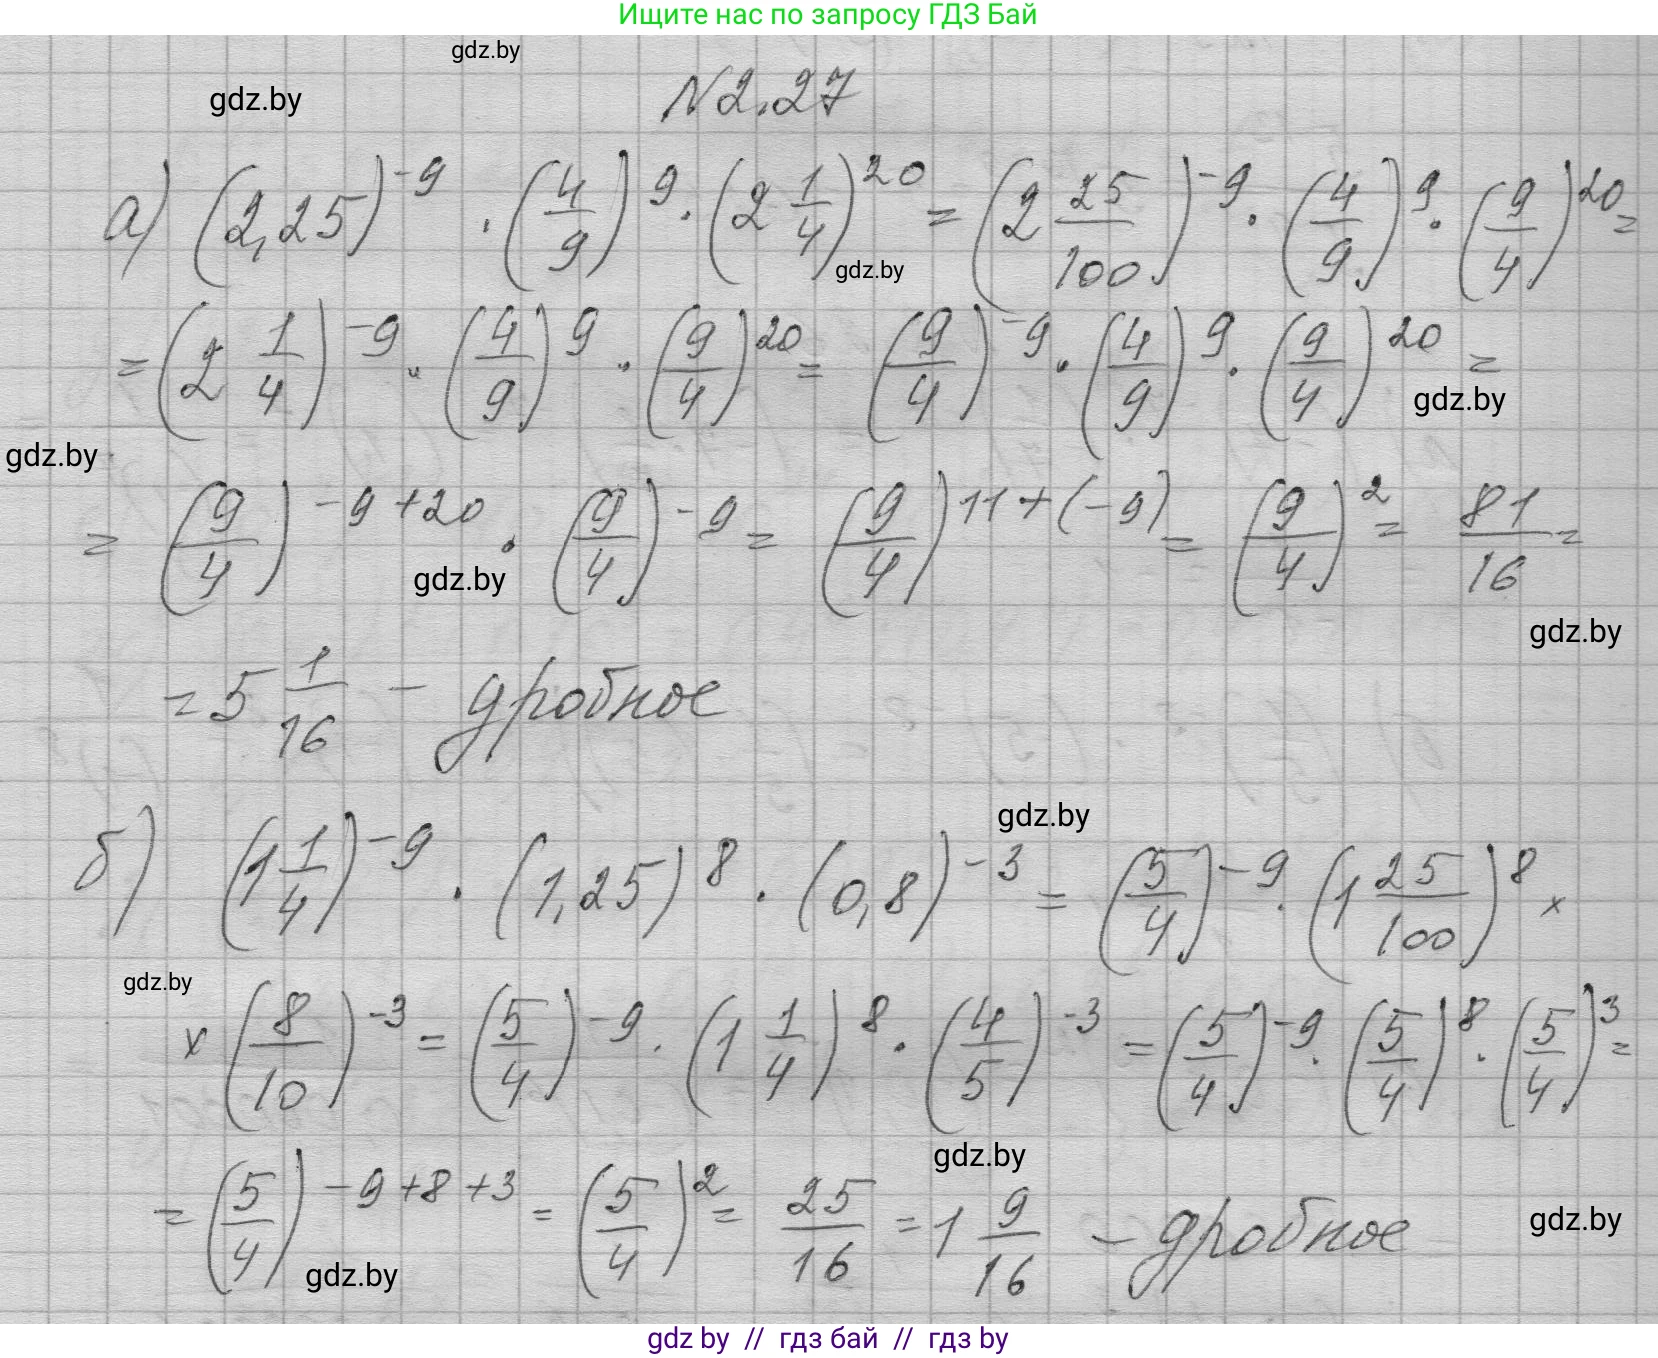 Ищите нас по запросу ГДЗ Бай
gdz.by
gdz.by
N2.27
а) (2,25)^-9 · (4/9)^9 · (2 1/4)^20 = (2 25/100)^-9 · (4/9)^9 · (9/4)^20 =
gdz.by
= (2 1/4)^-9 · (4/9)^9 · (9/4)^20 = (9/4)^-9 · (4/9)^9 · (9/4)^20 =
gdz.by
gdz.by
= (9/4)^-9+20 · (9/4)^-9 = (9/4)^11+(-9) = (9/4)^2 = 81/16 =
gdz.by
gdz.by
= 5 1/16 - дробное
gdz.by
б) (1 1/4)^-9 · (1,25)^8 · (0,8)^-3 = (5/4)^-9 · (1 25/100)^8 ×
gdz.by
× (8/10)^-3 = (5/4)^-9 · (1 1/4)^8 · (4/5)^-3 = (5/4)^-9 · (5/4)^8 · (5/4)^3 =
gdz.by
= (5/4)^-9+8+3 = (5/4)^2 = 25/16 = 1 9/16 - дробное
gdz.by
gdz.by
gdz by // гдз бай // гдз by